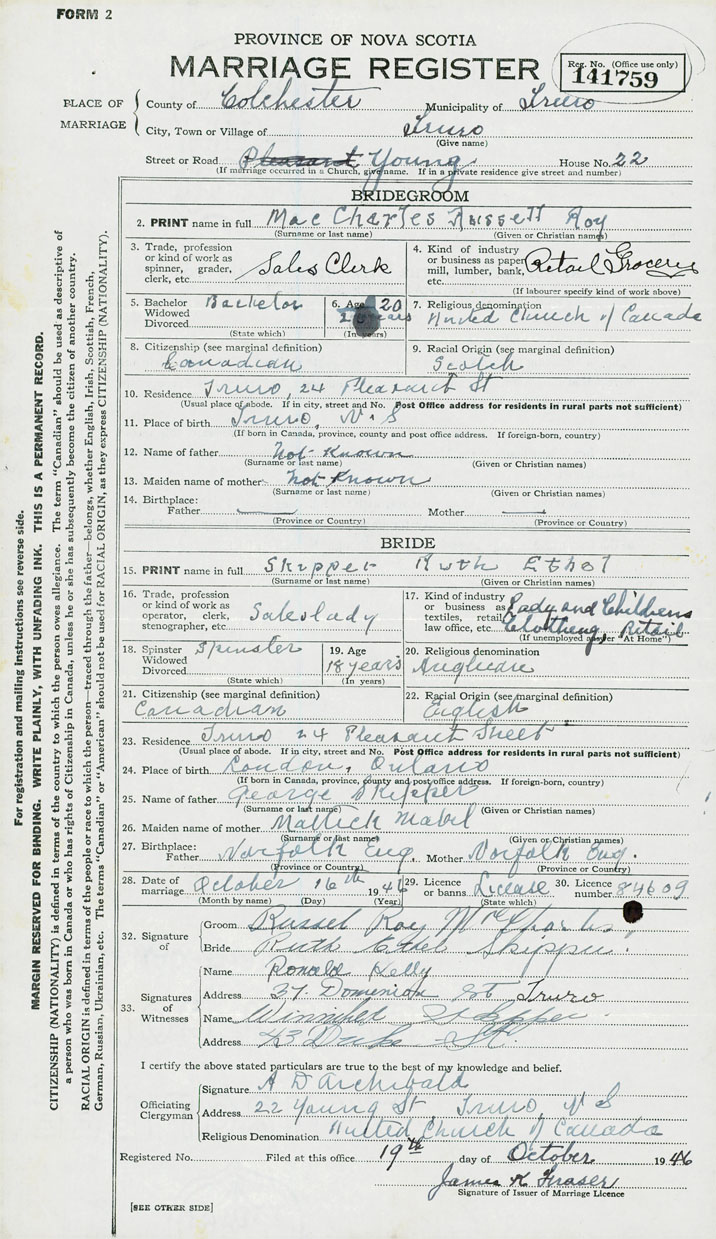 FORM 2
PROVINCE OF NOVA SCOTIA
MARRIAGE REGISTER
Reg. No. (Office use only)
141759
PLACE OF MARRIAGE
County of Colchester Municipality of Truro
City, Town or Village of Truro
(Give name)
Street or Road Pleasant Young House No. 22
(If marriage occurred in a Church, give name. If in a private residence give street and number)
BRIDEGROOM
2. PRINT name in full MacCharles Russell Roy
(Surname or last name) (Given or Christian names)
3. Trade, profession or kind of work as spinner, grader, clerk, etc. Sales Clerk
4. Kind of industry or business as paper mill, lumber, bank, etc. Retail Grocery
(If labourer specify kind of work above)
5. Bachelor Widowed Divorced Bachelor
(State which)
6. Age 20 years
(In years)
7. Religious denomination United Church of Canada
8. Citizenship (see marginal definition) Canadian
9. Racial Origin (see marginal definition) Scotch
10. Residence Truro, 24 Pleasant St
(Usual place of abode. If in city, street and No. Post Office address for residents in rural parts not sufficient)
11. Place of birth Truro, N.S
(If born in Canada, province, county and post office address. If foreign-born, country)
12. Name of father Not Known
(Surname or last name) (Given or Christian names)
13. Maiden name of mother Not Known
(Surname or last name) (Given or Christian names)
14. Birthplace:
Father Mother
(Province or Country) (Province or Country)
BRIDE
15. PRINT name in full Skipper Ruth Ethel
(Surname or last name) (Given or Christian names)
16. Trade, profession or kind of work as operator, clerk, stenographer, etc. Saleslady
17. Kind of industry or business as textiles, retail, law office, etc. Lady and Childrens Clotheng Retail
(If unemployed enter "At Home")
18. Spinster Widowed Divorced Spinster
(State which)
19. Age 18 years
(In years)
20. Religious denomination Anglican
21. Citizenship (see marginal definition) Canadian
22. Racial Origin (see marginal definition) English
23. Residence Truro 24 Pleasant Street
(Usual place of abode. If in city, street and No. Post Office address for residents in rural parts not sufficient)
24. Place of birth London, Ontario
(If born in Canada, province, county and post office address. If foreign-born, country)
25. Name of father George Skipper
(Surname or last name) (Given or Christian names)
26. Maiden name of mother Mabel
(Surname or last name) (Given or Christian names)
27. Birthplace:
Father Norfolk Eng. Mother Norfolk Eng.
(Province or Country) (Province or Country)
28. Date of marriage October 16th 1946
(Month by name) (Day) (Year)
29. Licence or banns License
(State which)
30. Licence number 84609
32. Signature of
Groom Russel Roy McCharles
Bride Ruth Ethel Skipper
33. Signatures of Witnesses
Name Ronald Kelly
Address 37 Dominion St Truro
Name Skipper
Address St.
I certify the above stated particulars are true to the best of my knowledge and belief.
Officiating Clergyman
Signature A D Archibald
Address 22 Young St, Truro, N S
Religious Denomination United Church of Canada
Registered No. Filed at this office 19th day of October 1946
James K Fraser
Signature of Issuer of Marriage Licence
[SEE OTHER SIDE]
For registration and mailing instructions see reverse side.
MARGIN RESERVED FOR BINDING. WRITE PLAINLY, WITH UNFADING INK. THIS IS A PERMANENT RECORD.
CITIZENSHIP (NATIONALITY) is defined in terms of the country to which the person owes allegiance. The term "Canadian" should be used as descriptive of
a person who was born in Canada or who has rights of Citizenship in Canada, unless he or she has subsequently become the citizen of another country.
RACIAL ORIGIN is defined in terms of the people or race to which the person—traced through the father—belongs, whether English, Irish, Scottish, French,
German, Russian, Ukrainian, etc. The terms "Canadian" or "American" should not be used for RACIAL ORIGIN, as they express CITIZENSHIP (NATIONALITY).